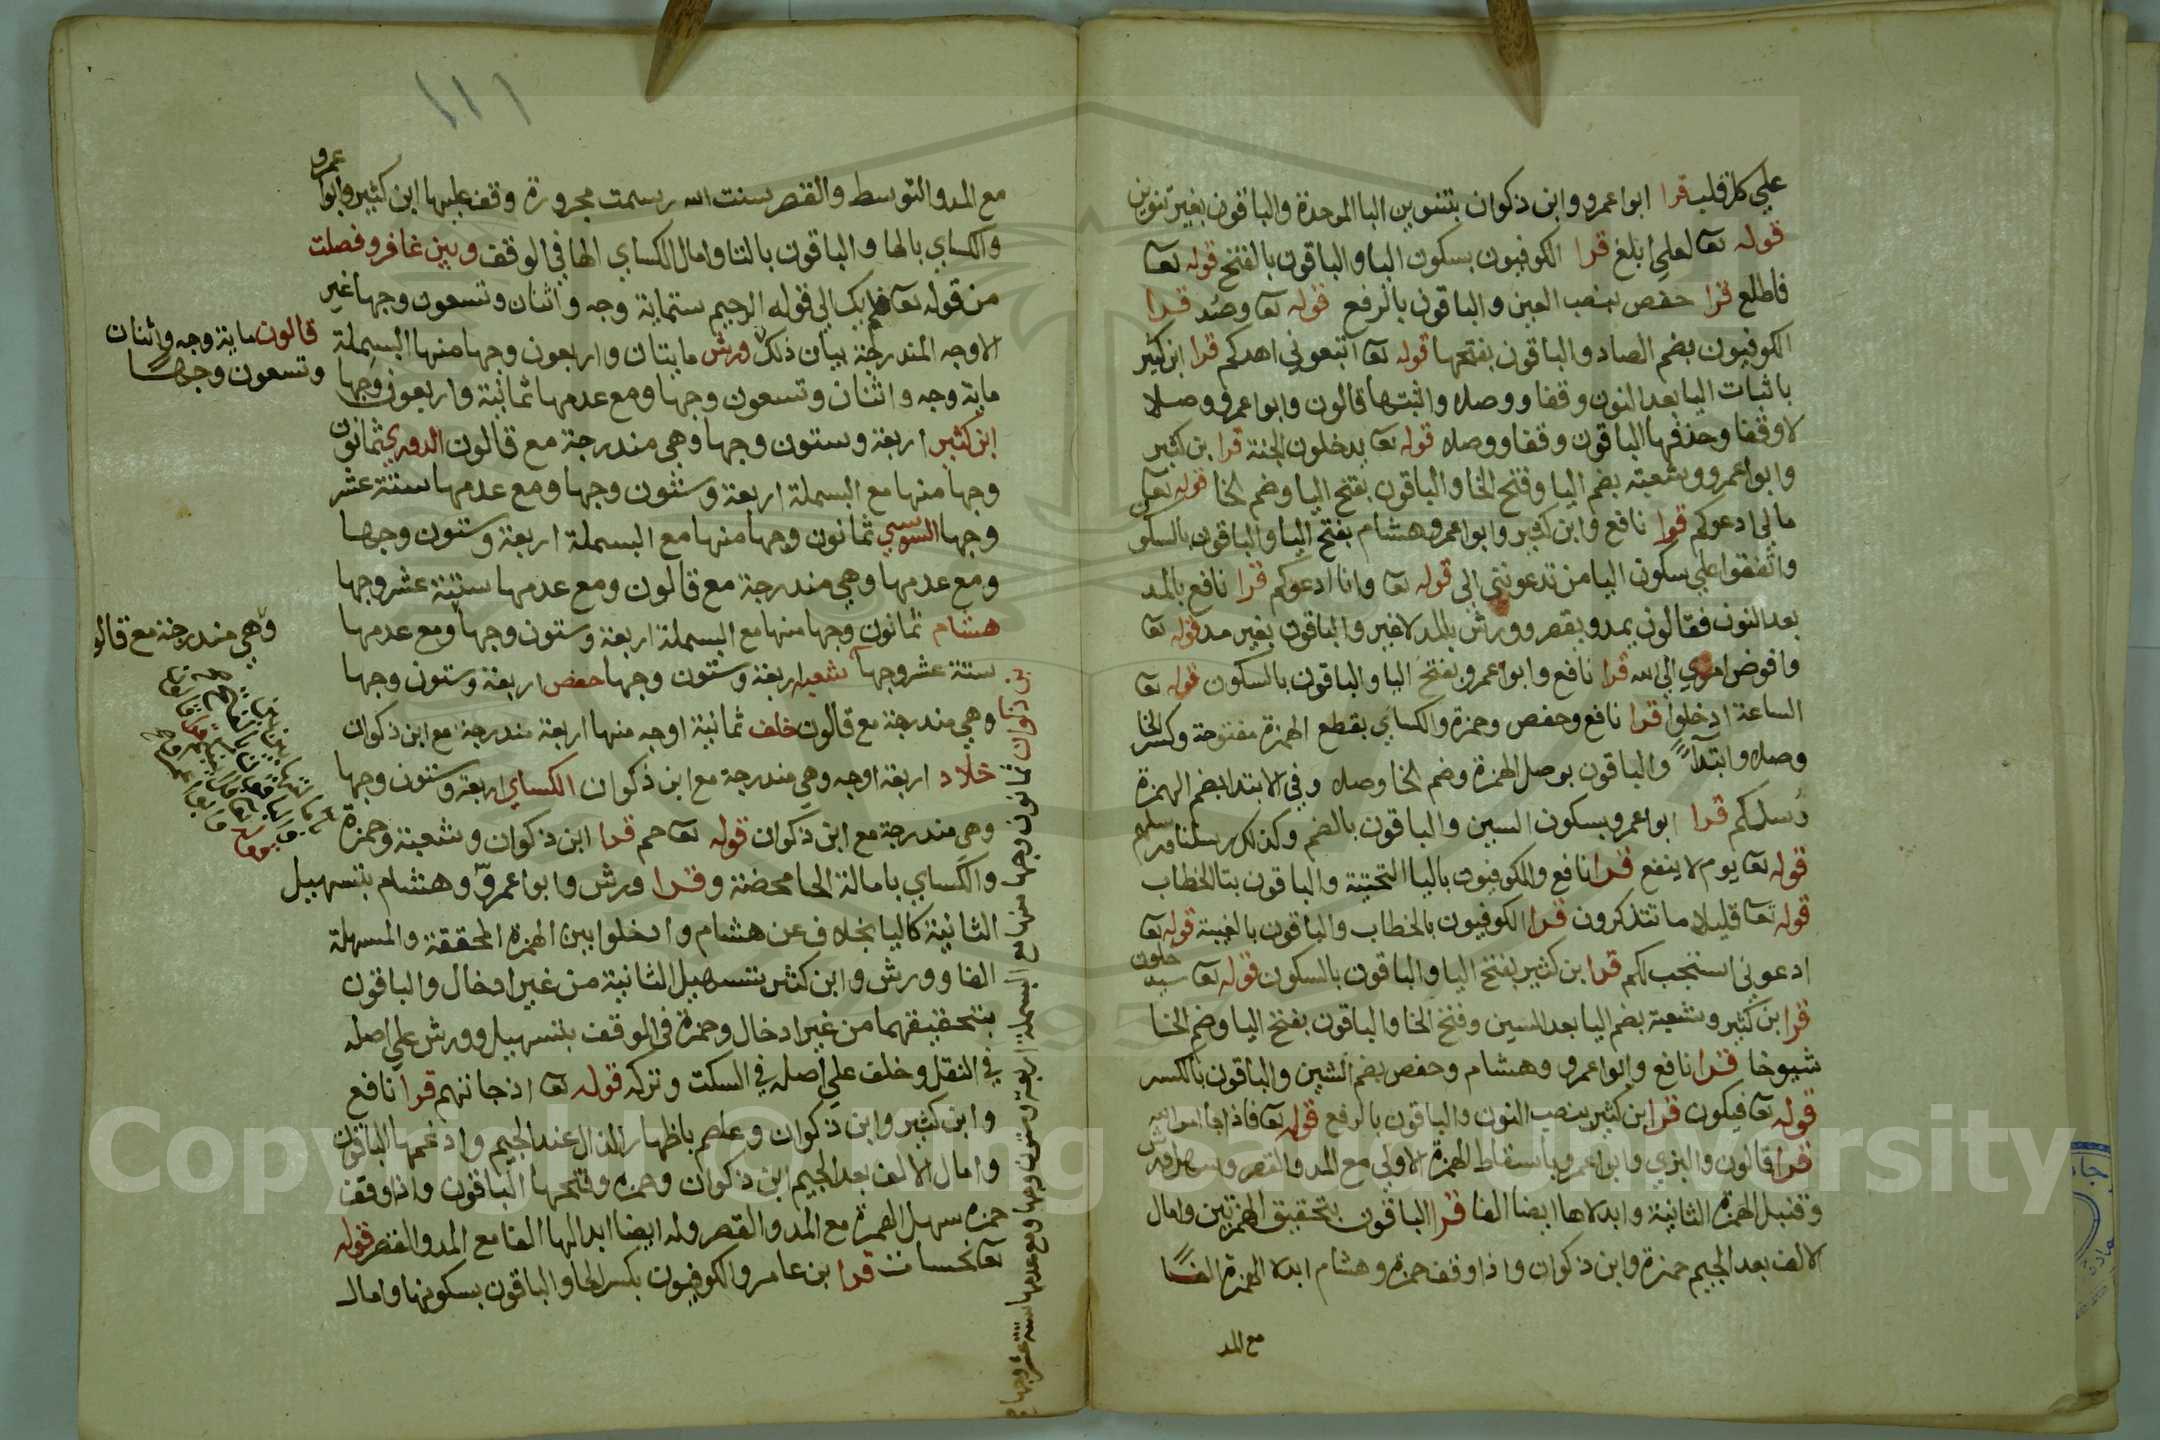 علي كل قلب قرا ابوا عمرو وابن ذكوان بتنوين البا الموحدة والباقون بغير تنوين
قوله تعا لعلي ابلغ قرا الكوفيون بسكون اليا والباقون بالفتح قوله تعا
فاطلع قرا حفص بنصب العين والباقون بالرفع قوله تعا وصُد قرا
الكوفيون بضم الصاد والباقون بفتحها قوله تعا اتبعوني اهدكم قرا ابن كثير
باثبات اليا بعد النون وقفا ووصلا واثبتها قالون وابوا عمرو وصلا
لا وقفا وحذفها الباقون وقفا ووصلا قوله تعا يدخلون الجنة قرا بن كثير
وابوا عمرو وشعبة بضم اليا وفتح الخا والباقون بفتح اليا وضم الخا قوله تعا
مالي ادعوكم قرا نافع وابن كثير وابوا عمرو وهشام بفتح اليا والباقون بالسكو
واتفقوا علي سكون اليا من تدعونني الي قوله تعا وانا ادعوكم قرا نافع بالمد
بعد النون فقالون يمد ويقصر وورش بالمد لا غير والباقون بغير مد قوله تعا
وافوض امري الي الله قرا نافع وابوا عمرو بفتح اليا والباقون بالسكون قوله تعا
الساعة ادخلوا قرا نافع وحفص وحمزة والكساي بقطع الهمزة مفتوحة وكسر الخا
وصلا وابتداً والباقون بوصل الهمزة وضم الخا وصلا وفي الابتدا بضم الهمزة
رُسلكم قرا ابوا عمرو بسكون السين والباقون بالضم وكذلك رسلنا ورسلهم
قوله تعا يوم لا ينفع قرا نافع والكوفيون باليا التحتية والباقون بتا الخطاب
قوله تعا قليلا ما تتذكرون قرا الكوفيون بالخطاب والباقون بالغيبة قوله تعا
ادعوني استجب لكم قرا بن كثير بفتح اليا والباقون بالسكون قوله تعا سيدخلون
قرا بن كثير وشعبة بضم اليا بعد السين وفتح الخا والباقون بفتح اليا وضم الخا
شيوخا قرا نافع وابوا عمرو وهشام وحفص بضم الشين والباقون بالكسر
قوله تعا فيكون قرا ابن كثير بنصب النون والباقون بالرفع قوله تعا فاذا جا امر الله
قرا قالون والبزي وابوا عمرو باسقاط الهمزة الاولي مع المد والقصر وسهل ورش
وقنبل الهمزة الثانية وابدلاها ايضا الفا قرا الباقون بتحقيق الهمزتين وامال
الالف بعد الجيم حمزة وابن ذكوان واذا وقف حمزة وهشام ابدلا الهمزة الفًا
مع المد
١١١
مع المد والتوسط والقصر سنت الله رسمت مجرورة وقف عليها ابن كثير وابوا عمرو
والكساي بالها والباقون بالتا وامال الكساي الها في الوقف وبين غافر وفصلت
من قوله تعا فلم يك الي قوله الرحيم ستماية وجه واثنان وتسعون وجها غير
الاوجه المندرجة بيان ذلك ورش مايتان واربعون وجها منها البسملة
ماية وجه واثنان وتسعون وجها ومع عدمها ثمانية واربعون وجها
ابن كثير اربعة وستون وجها وهي مندرجة مع قالون الدوري ثمانون
وجها منها مع البسملة اربعة وستون وجها ومع عدمها ستة عشر
وجها السوسي ثمانون وجها منها مع البسملة اربعة وستون وجها
ومع عدمها وهي مندرجة مع قالون ومع عدمها ستة عشر وجها
هشام ثمانون وجها منها مع البسملة اربعة وستون وجها ومع عدمها
ستة عشر وجها شعبة اربعة وستون وجها حفص اربعة وستون وجها
وهي مندرجة مع قالون خلف ثمانية اوجه منها اربعة مندرجة مع ابن ذكوان
خلاد اربعة اوجه وهي مندرجة مع ابن ذكوان الكساي اربعة وستون وجها
وهي مندرجة مع ابن ذكوان قوله تعا حم قرا ابن ذكوان وشعبة وحمزة
والكساي بامالة الحا محضة وقرا ورش وابوا عمرو وهشام بتسهيل
الثانية كاليا بخلاف عن هشام وادخلوا بين الهمزة المحققة والمسهلة
الفا وورش وابن كثير بتسهيل الثانية من غير ادخال والباقون
بتحقيقهما من غير ادخال وحمزة في الوقف بتسهيل وورش علي اصله
في النقل وخلف علي اصله في السكت وتركه قوله تعا اذ جاتهم قرا نافع
وابن كثير وابن ذكوان وعاصم باظهار الذال عند الجيم وادغمها الباقون
وامال الالف بعد الجيم ابن ذكوان وحمزه وفتحها الباقون واذا وقف
حمزه سهل الهمزة مع المد والقصر وله ايضا ابدالها الفا مع المد والقصر قوله
تعا نحسات قرا بن عامر والكوفيون بكسر الحا والباقون بسكونها وامال
قالون ماية وجه واثنان
وتسعون وجها
وهي مندرجة مع قالو
بن ذكوان ثمانون وجها منها مع البسملة اربعة وستون وجها ومع عدمها ستة عشر وجها
Copyright © King Saud University